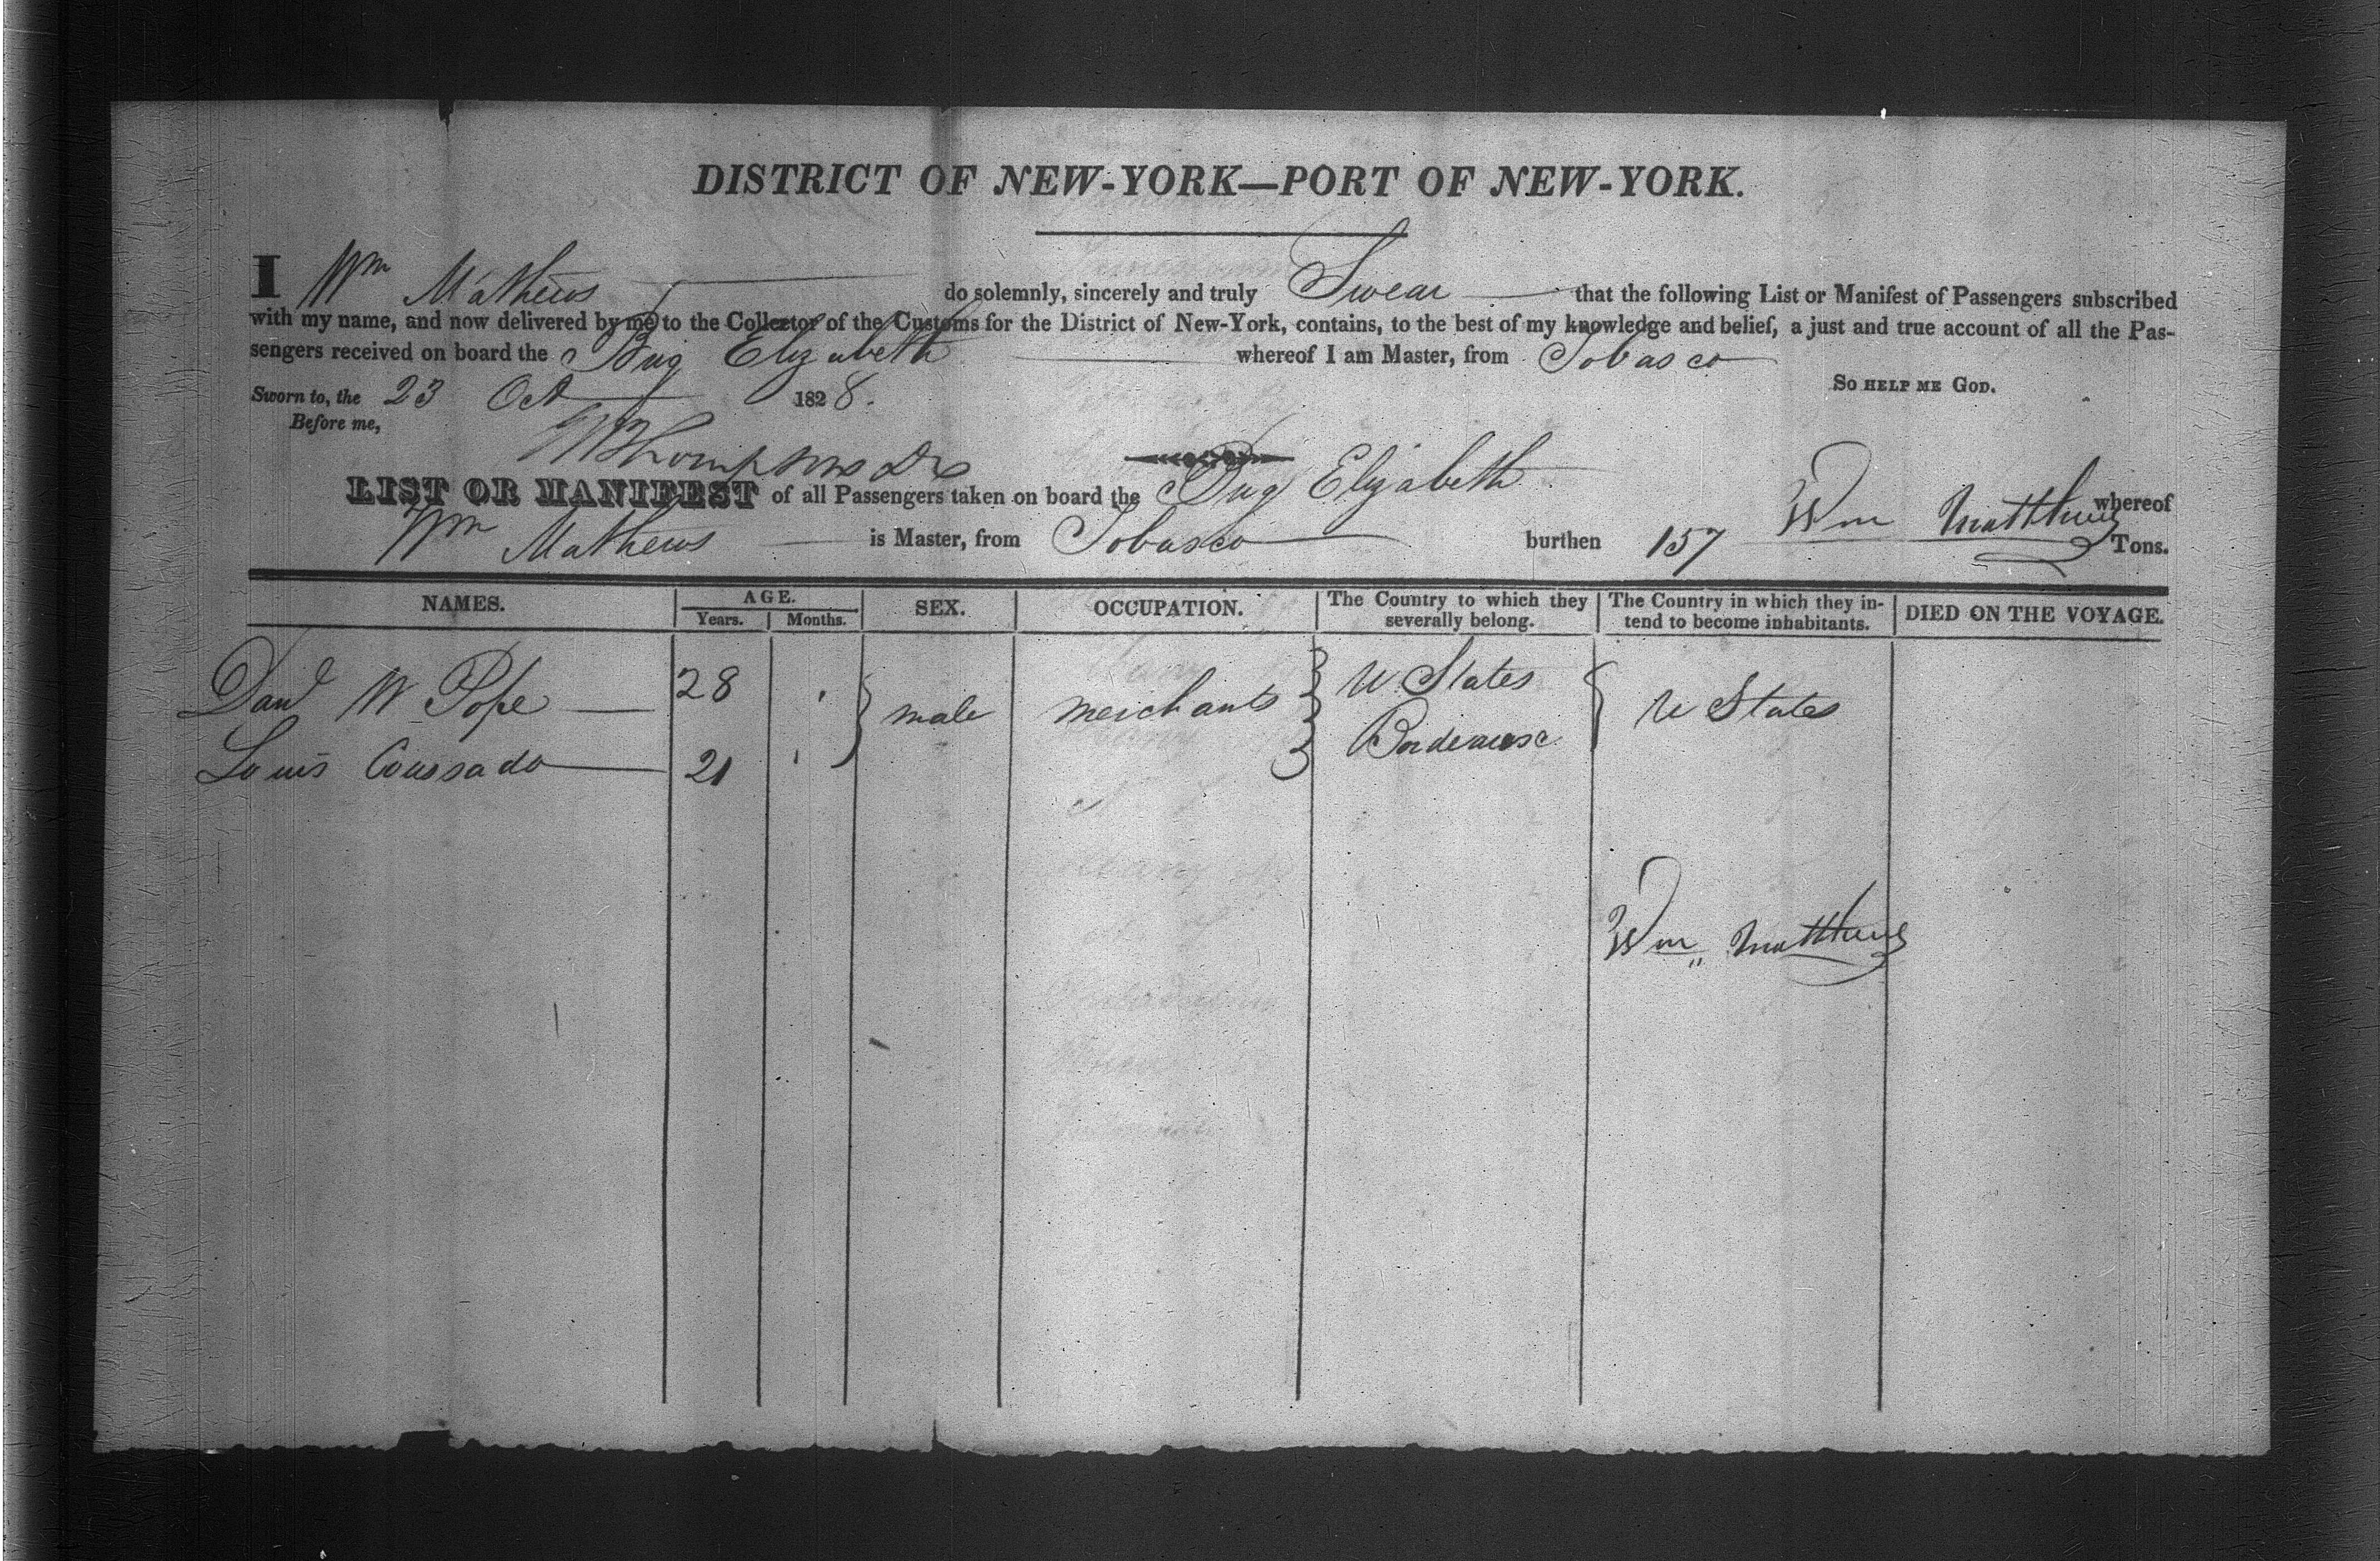 DISTRICT OF NEW-YORK—PORT OF NEW-YORK.
I Wm Mathews do solemnly, sincerely and truly Swear that the following List or Manifest of Passengers subscribed
with my name, and now delivered by me to the Collector of the Customs for the District of New-York, contains, to the best of my knowledge and belief, a just and true account of all the Pas-
sengers received on board the Brig Elizabeth whereof I am Master, from Tobasco
So HELP ME GOD.
Sworn to, the 23 Oct 1828.
Before me,
Thompson
LIST OR MANIFEST of all Passengers taken on board the Brig Elizabeth whereof
Wm Matthews
Wm Mathews is Master, from Tobasco burthen 157 Tons.
NAMES. AGE. Years. Months. SEX. OCCUPATION. The Country to which they severally belong. The Country in which they in-tend to become inhabitants. DIED ON THE VOYAGE.
Danl W Pope 28 male merchants U. States U States
Louis Coussado 21 Bordeaux
Wm Matthews